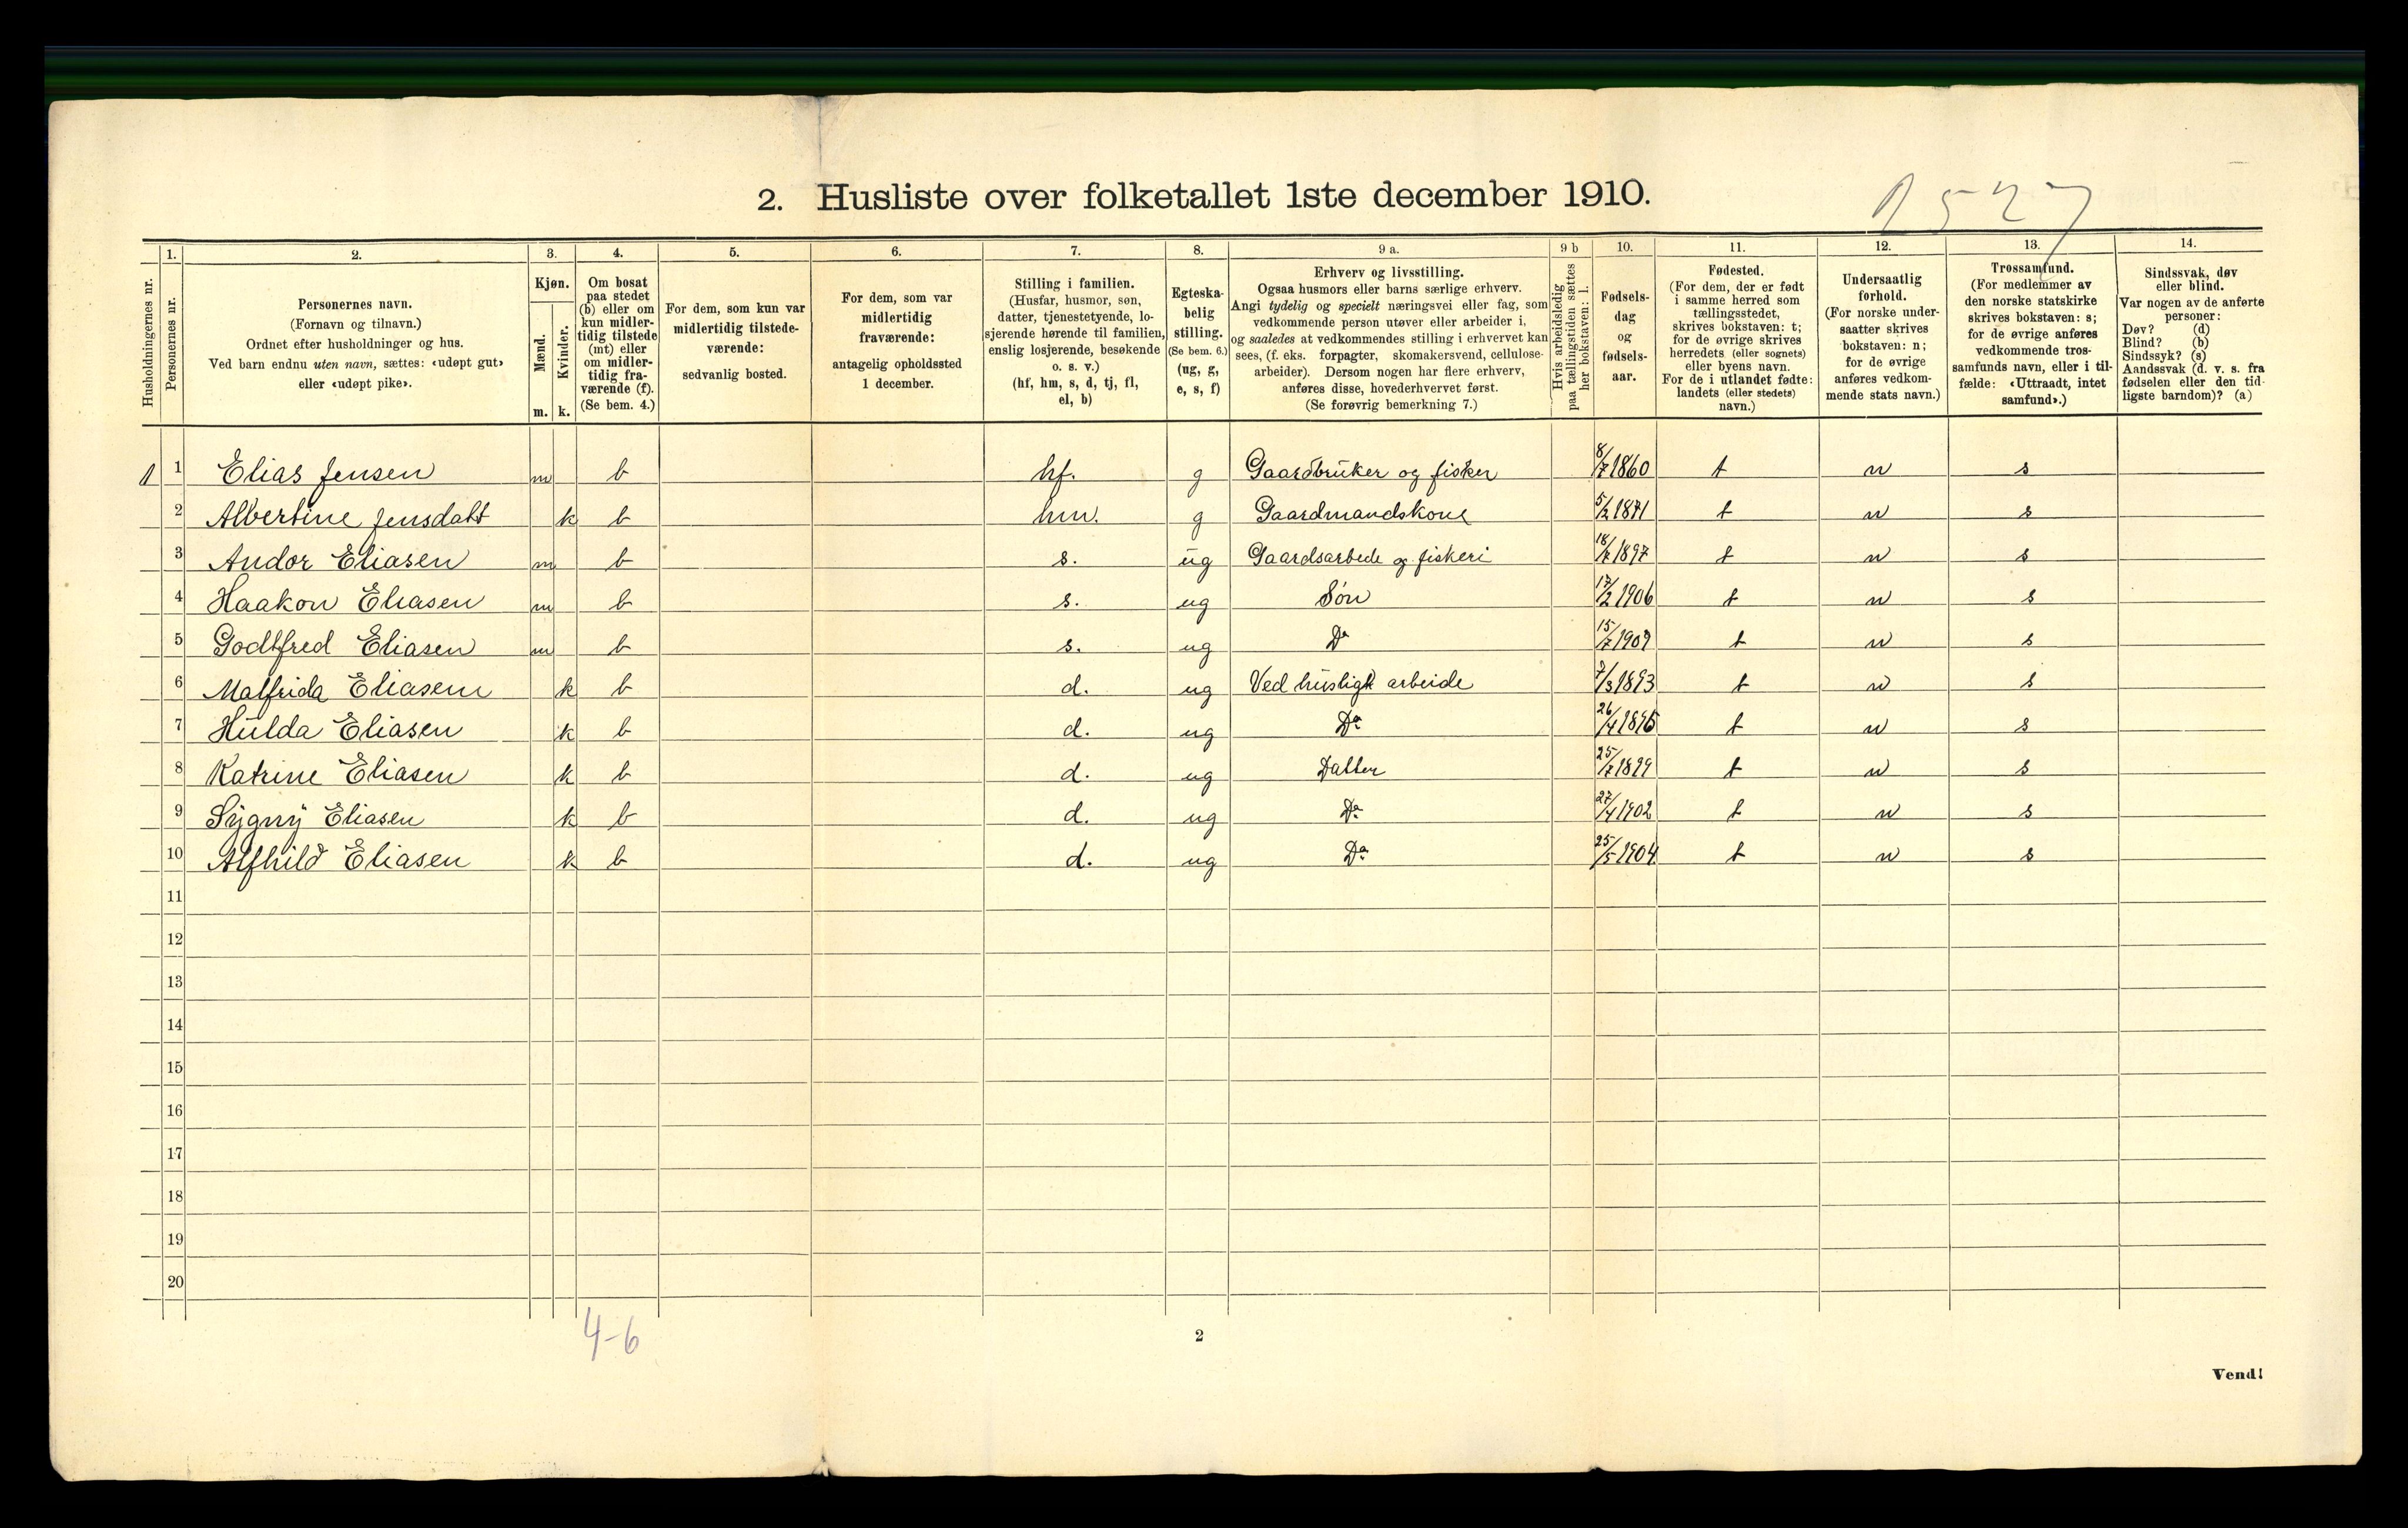 2. Husliste over folketallet 1ste december 1910.
1. 2. 3. 4. 5. 6. 7. 8. 9 a. 9 b 10. 11. 12. 13. 14.
Husholdningernes nr.
Personernes nr.
Personernes navn.
(Fornavn og tilnavn.)
Ordnet efter husholdninger og hus.
Ved barn endnu uten navn, sættes: «udøpt gut»
eller «udøpt pike».
Kjøn.
Mænd.
Kvinder.
m. k.
Om bosat
paa stedet
(b) eller om
kun midler-
tidig tilstede
(mt) eller
om midler-
tidig fra-
værende (f).
(Se bem. 4.)
For dem, som kun var
midlertidig tilstede-
værende:
sedvanlig bosted.
For dem, som var
midlertidig
fraværende:
antagelig opholdssted
1 december.
Stilling i familien.
(Husfar, husmor, søn,
datter, tjenestetyende, lo-
sjerende hørende til familien,
enslig losjerende, besøkende
o. s. v.)
(hf, hm, s, d, tj, fl,
el, b)
Egteska-
belig
stilling.
(Se bem. 6.)
(ug, g,
e, s, f)
Erhverv og livsstilling.
Ogsaa husmors eller barns særlige erhverv.
Angi tydelig og specielt næringsvei eller fag, som
vedkommende person utøver eller arbeider i,
og saaledes at vedkommendes stilling i erhvervet kan
sees, (f. eks. forpagter, skomakersvend, cellulose-
arbeider). Dersom nogen har flere erhverv,
anføres disse, hovederhvervet først.
(Se forøvrig bemerkning 7.)
Hvis arbeidsledig
paa tællingstiden sættes
her bokstaven: l.
Fødsels-
dag
og
fødsels-
aar.
Fødested.
(For dem, der er født
i samme herred som
tællingsstedet,
skrives bokstaven: t;
for de øvrige skrives
herredets (eller sognets)
eller byens navn.
For de i utlandet fødte:
landets (eller stedets)
navn.)
Undersaatlig
forhold.
(For norske under-
saatter skrives
bokstaven: n;
for de øvrige
anføres vedkom-
mende stats navn.)
Trossamfund.
(For medlemmer av
den norske statskirke
skrives bokstaven: s;
for de øvrige anføres
vedkommende tros-
samfunds navn, eller i til-
fælde: «Uttraadt, intet
samfund».)
Sindssvak, døv
eller blind.
Var nogen av de anførte
personer:
Døv? (d)
Blind? (b)
Sindssyk? (s)
Aandssvak (d. v. s. fra
fødselen eller den tid-
ligste barndom)? (a)
1 1 Elias Jensen m b hf. g Gaardbruker og fisker 8/7 1860 t n s
2 Albertine Jensdatt k b hm. g Gaardmandskone 5/2 1871 t n s
3 Andor Eliasen m b s. ug Gaardsarbede og fiskeri 1897 t n s
4 Haakon Eliasen m b s. ug Søn 17/2 1906 t n s
5 Godtfred Eliasen m b s. ug Do 15/7 1909 t n s
6 Malfrida Eliasen k b d. ug Ved husligt arbeide 7/3 1893 t n s
7 Hulda Eliasen k b d. ug Do 26/4 1895 t n s
8 Katrine Eliasen k b d. ug Datter 25/7 1899 t n s
9 Sygny Eliasen k b d. ug Do 27/4 1902 t n s
10 Alfhild Eliasen k b d. ug Do 25/5 1904 t n s
11
12
13
14
15
16
17
18
19
20
4-6
2
Vend!